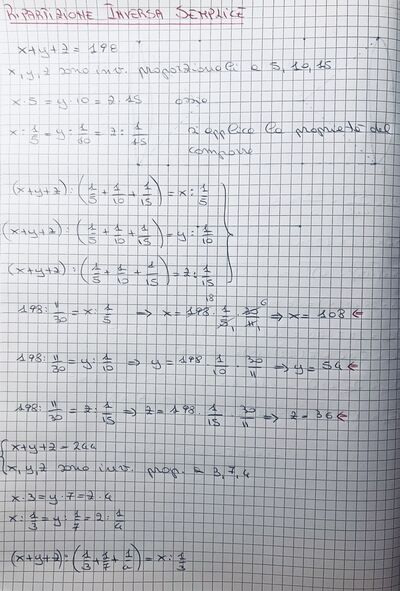 RIPARTIZIONE INVERSA SEMPLICE
x+y+z = 198
x, y, z sono inv. proporzionali a 5, 10, 15
x·5 = y·10 = z·15 ossia
x : 1/5 = y : 1/10 = z : 1/15 si applica la proprietà del
comporre
(x+y+z) : (1/5 + 1/10 + 1/15) = x : 1/5
(x+y+z) : (1/5 + 1/10 + 1/15) = y : 1/10
(x+y+z) : (1/5 + 1/10 + 1/15) = z : 1/15
198 : 11/30 = x : 1/5 ⇒ x = 198 · 1/5 · 30/11 ⇒ x = 108 ←
198 : 11/30 = y : 1/10 ⇒ y = 198 · 1/10 · 30/11 ⇒ y = 54 ←
198 : 11/30 = z : 1/15 ⇒ z = 198 · 1/15 · 30/11 ⇒ z = 36 ←
x+y+z = 244
x, y, z sono inv. prop. a 3, 7, 4
x·3 = y·7 = z·4
x : 1/3 = y : 1/7 = z : 1/4
(x+y+z) : (1/3 + 1/7 + 1/4) = x : 1/3